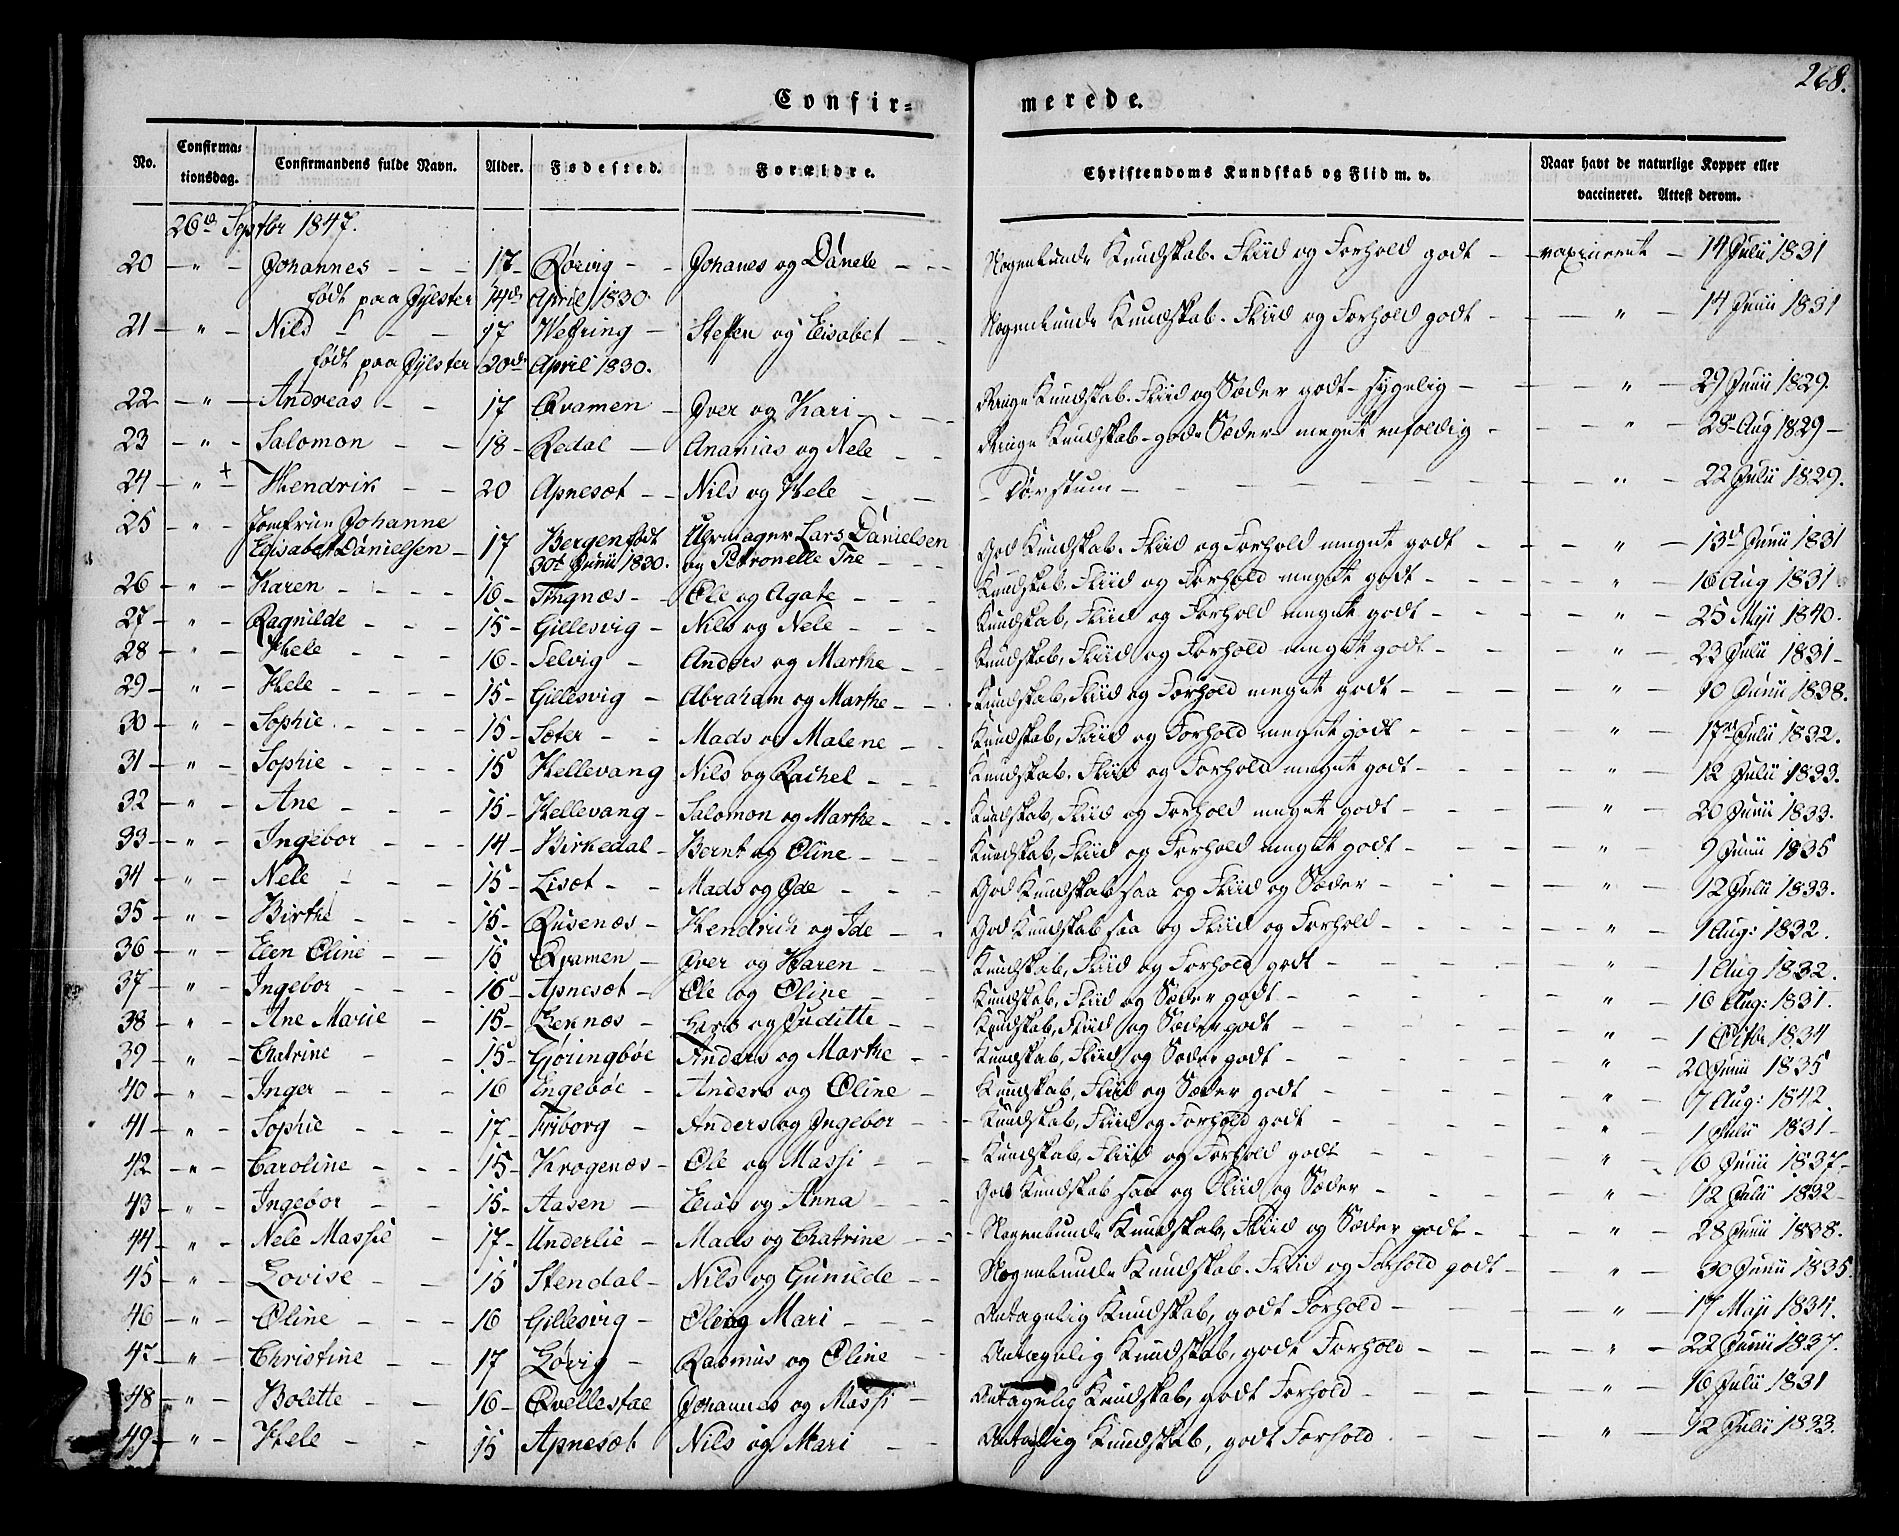 268.
Confir= merede.
No. Confirma= tionsdag. Confirmandens fulde Navn. Alder. Fødested. Forældre. Christendoms Kundskab og Flid m. v. Naar havt de naturlige Kopper eller vaccineret. Attest derom.
26d Septbr 1847.
20 — " — Johannes — — — 17 — Rørvig — — Johanes og Dånele — — Nogenlunde Kundskab. Fliid og Forhold godt — vaxineret — 14 Julii 1831
født paa Jylster 14d April 1830.
21 — " — Nils — — — 17 Wefring — Steffen og Elisabet — — Nogenlunde Kundskab. Fliid og Forhold godt — — " — 14 Junii 1831
født paa Jylster 20d April 1830.
22 — " — Andreas — — 17 Qvamen — Iver og Kari — — — Ringe Kundskab. Fliid og Sæder godt — sygelig — — " — 29 Junii 1829.
23 — " — Salomon — — 18 — Redal — Ananias og Nele — — Ringe Kundskab — gode Sæder meget enfoldig — — " — 28 Aug 1829 —
24 — " + — Hendrik — — 20 Apnesæt — — Nils og Hele — — — Døvstum — — — — " — 22 Julii 1829.
25 — " — Jomfrue Johanne
Elisabet Danielsen — 17 Bergen født 30t Junii 1830. Uhrmager Lars Danielsen og Petronelle Tne — — — God Kundskab. Fliid og Forhold meget godt — — " — 13d Junii 1831
26 — " — Karen — — — — 16 — Tingnæs — Ole og Agate — — — Kundskab, Fliid og Forhold meget godt — — — " — 16 Aug 1831
27 — " — Ragnilde — — — 15 — Gillesvig — Nils og Nele — — — Kundskab, Fliid og Forhold meget godt — — — " — 25 Maji 1840.
28 — " — Hele — — — 16 — Selvig — Anders og Marthe — — Kundskab, Fliid og Forhold meget godt — — — " — 23 Julii 1831 —
29 — " — Hele — — — — 15 — Gillesvig — Abraham og Marthe — — Kundskab, Fliid og Forhold meget godt — — — " — 10 Junii 1838.
30 — " — Sophie — — — — 15 — Sæter — — Mads og Malene — — Kundskab, Fliid og Forhold meget godt — — — " — 17d Julii 1832.
31 — " — Sophie — — — — 15 Hellevang Nils og Rachel — — — Kundskab. Fliid og Forhold meget godt — — — " — 12 Julii 1833.
32 — " — Ane — — — — 15 — Hellevang — Salomon og Marthe — — Kundskab, Fliid og Forhold meget godt — — — " — 20 Junii 1833.
33 — " — Ingebor — — — 14 — Birkedal — Bernt og Oline — — — Kundskab, Fliid og Forhold meget godt — — — " — 9 Junii 1835
34 — " — Nele — — — 15 — Lisæt — — Mads og Ode — — — God Kundskab saa og Fliid og Sæder — — — " — 12 Julii 1833.
35 — " — Birthe — — — 15 — Rusenæs — Hendrich og Ide — — God Kundskab saa og Fliid og Forhold — — — " — 1 Aug: 1832.
36 — " — Elen Oline — — 15 Qvamen — Iver og Karen — — Kundskab, Fliid og Forhold godt — — — " — 1 Aug 1832.
37 — " — Ingebor — — — 16 — Apnesæt — Ole og Oline — — Kundskab, Fliid og Sæder godt — — — " — 16 Aug: 1831.
38 — " — Ane Marie — 15 — Leknæs — Lars og Juditte — — Kundskab, Fliid og Sæder godt — — — " — 1 Octbr 1834
39 — " — Chatrine — — 15 — Gjøringbøe Anders og Marthe — — Kundskab, Fliid og Sæder godt — — — " — 20 Junii 1835
40 — " — Inger — — — 16 Engebøe — Anders og Oline — — Kundskab, Fliid og Sæder godt — — — " — 7 Aug: 1842
41 — " — Sophie — — — 17 — Friborg — Anders og Ingebor — — Kundskab, Fliid og Forhold godt — — — " — 1 Julii 1831 —
42 — " — Caroline — — — 15 — Krogenæs — Ole og Massi — — — Kundskab, Fliid og Forhold godt — — — " — 6 Junii 1837 —
43 — " — Ingebor — — 15 — Aasen — Elias og Anna — — — God Kundskab saa og Fliid og Sæder — — — " — 12 Julii 1832 —
44 — " — Nele Massie — 17 — Underlie — Mads og Chatrine — — Nogenlunde Kundskab, Fliid og Sæder godt — — — " — 28 Junii 1838.
45 — " — Lovise — — 15 Stendal — Nils og Gunilde — — Nogenlunde Kundskab. Fliid og Forhold godt — — " — 30 Junii 1835.
46 — " — Oline — — — 16 Gillesvig — Ole og Mari — — — Antagelig Kundskab, godt Forhold — — — " — 17 Maji 1834.
47 — " — Christine — — 17 Løvig — Rasmus og Oline — — Antagelig Kundskab, godt Forhold — — — " — 22 Junii 1837.
48 — " — Bolette — — 16 — Qvellestae Johannes og Massi — — Antagelig Kundskab, godt Forhold — — — " — 16 Julii 1831
49 — " — Hele — — 15 Apnesæt Nils og Mari — — Antagelig Kundskab, godt Forhold — — — " — 12 Julii 1833.